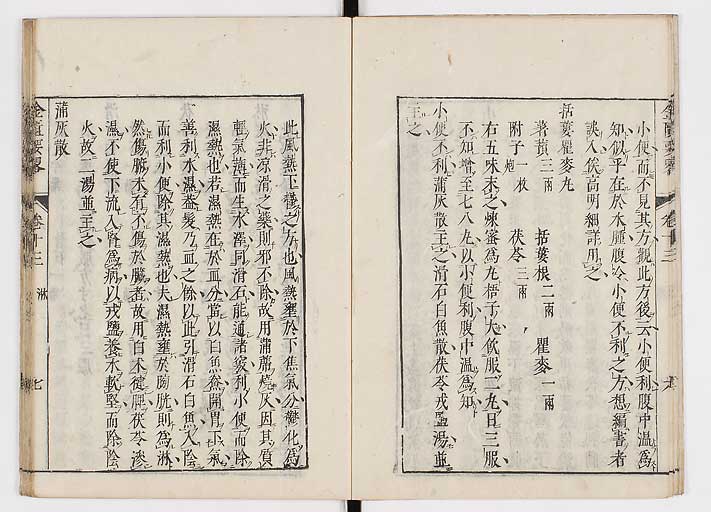 小便而不見其方觀此方後云小便利腹中溫為
知似乎在於水腫腹冷小便不利之方想編書者
誤入俟高明細詳用之
栝蔞瞿麥丸
薯蕷三兩　栝蔞根二兩　瞿麥一兩
附子一枚炮　茯苓三兩
右五味末之煉蜜為丸梧子大飲服二丸日三服
不知增至七八丸以小便利腹中溫為知
小便不利蒲灰散主之滑石白魚散茯苓戎鹽湯並
主之
金匱要略　卷十三　淋　七
此風熱上壅之方也風熱壅於下焦氣分鬱化為
火非凉滑之藥則邪不除故用蒲蓆燒灰因其質
輕氣薄而生水澤同滑石能通諸竅利小便而除
濕熱也若濕熱在於血分當以白魚飱開胃下氣
善利水濕益髮乃血之餘以此引滑石白魚入陰
而利小便除其濕熱也夫濕熱壅於胞胱則為淋
然傷臟未有不傷於臟者故用白朮健脾茯苓滲
濕不使下流入腎為病以戎鹽養水軟堅而除陰
火故二湯並主之
蒲灰散